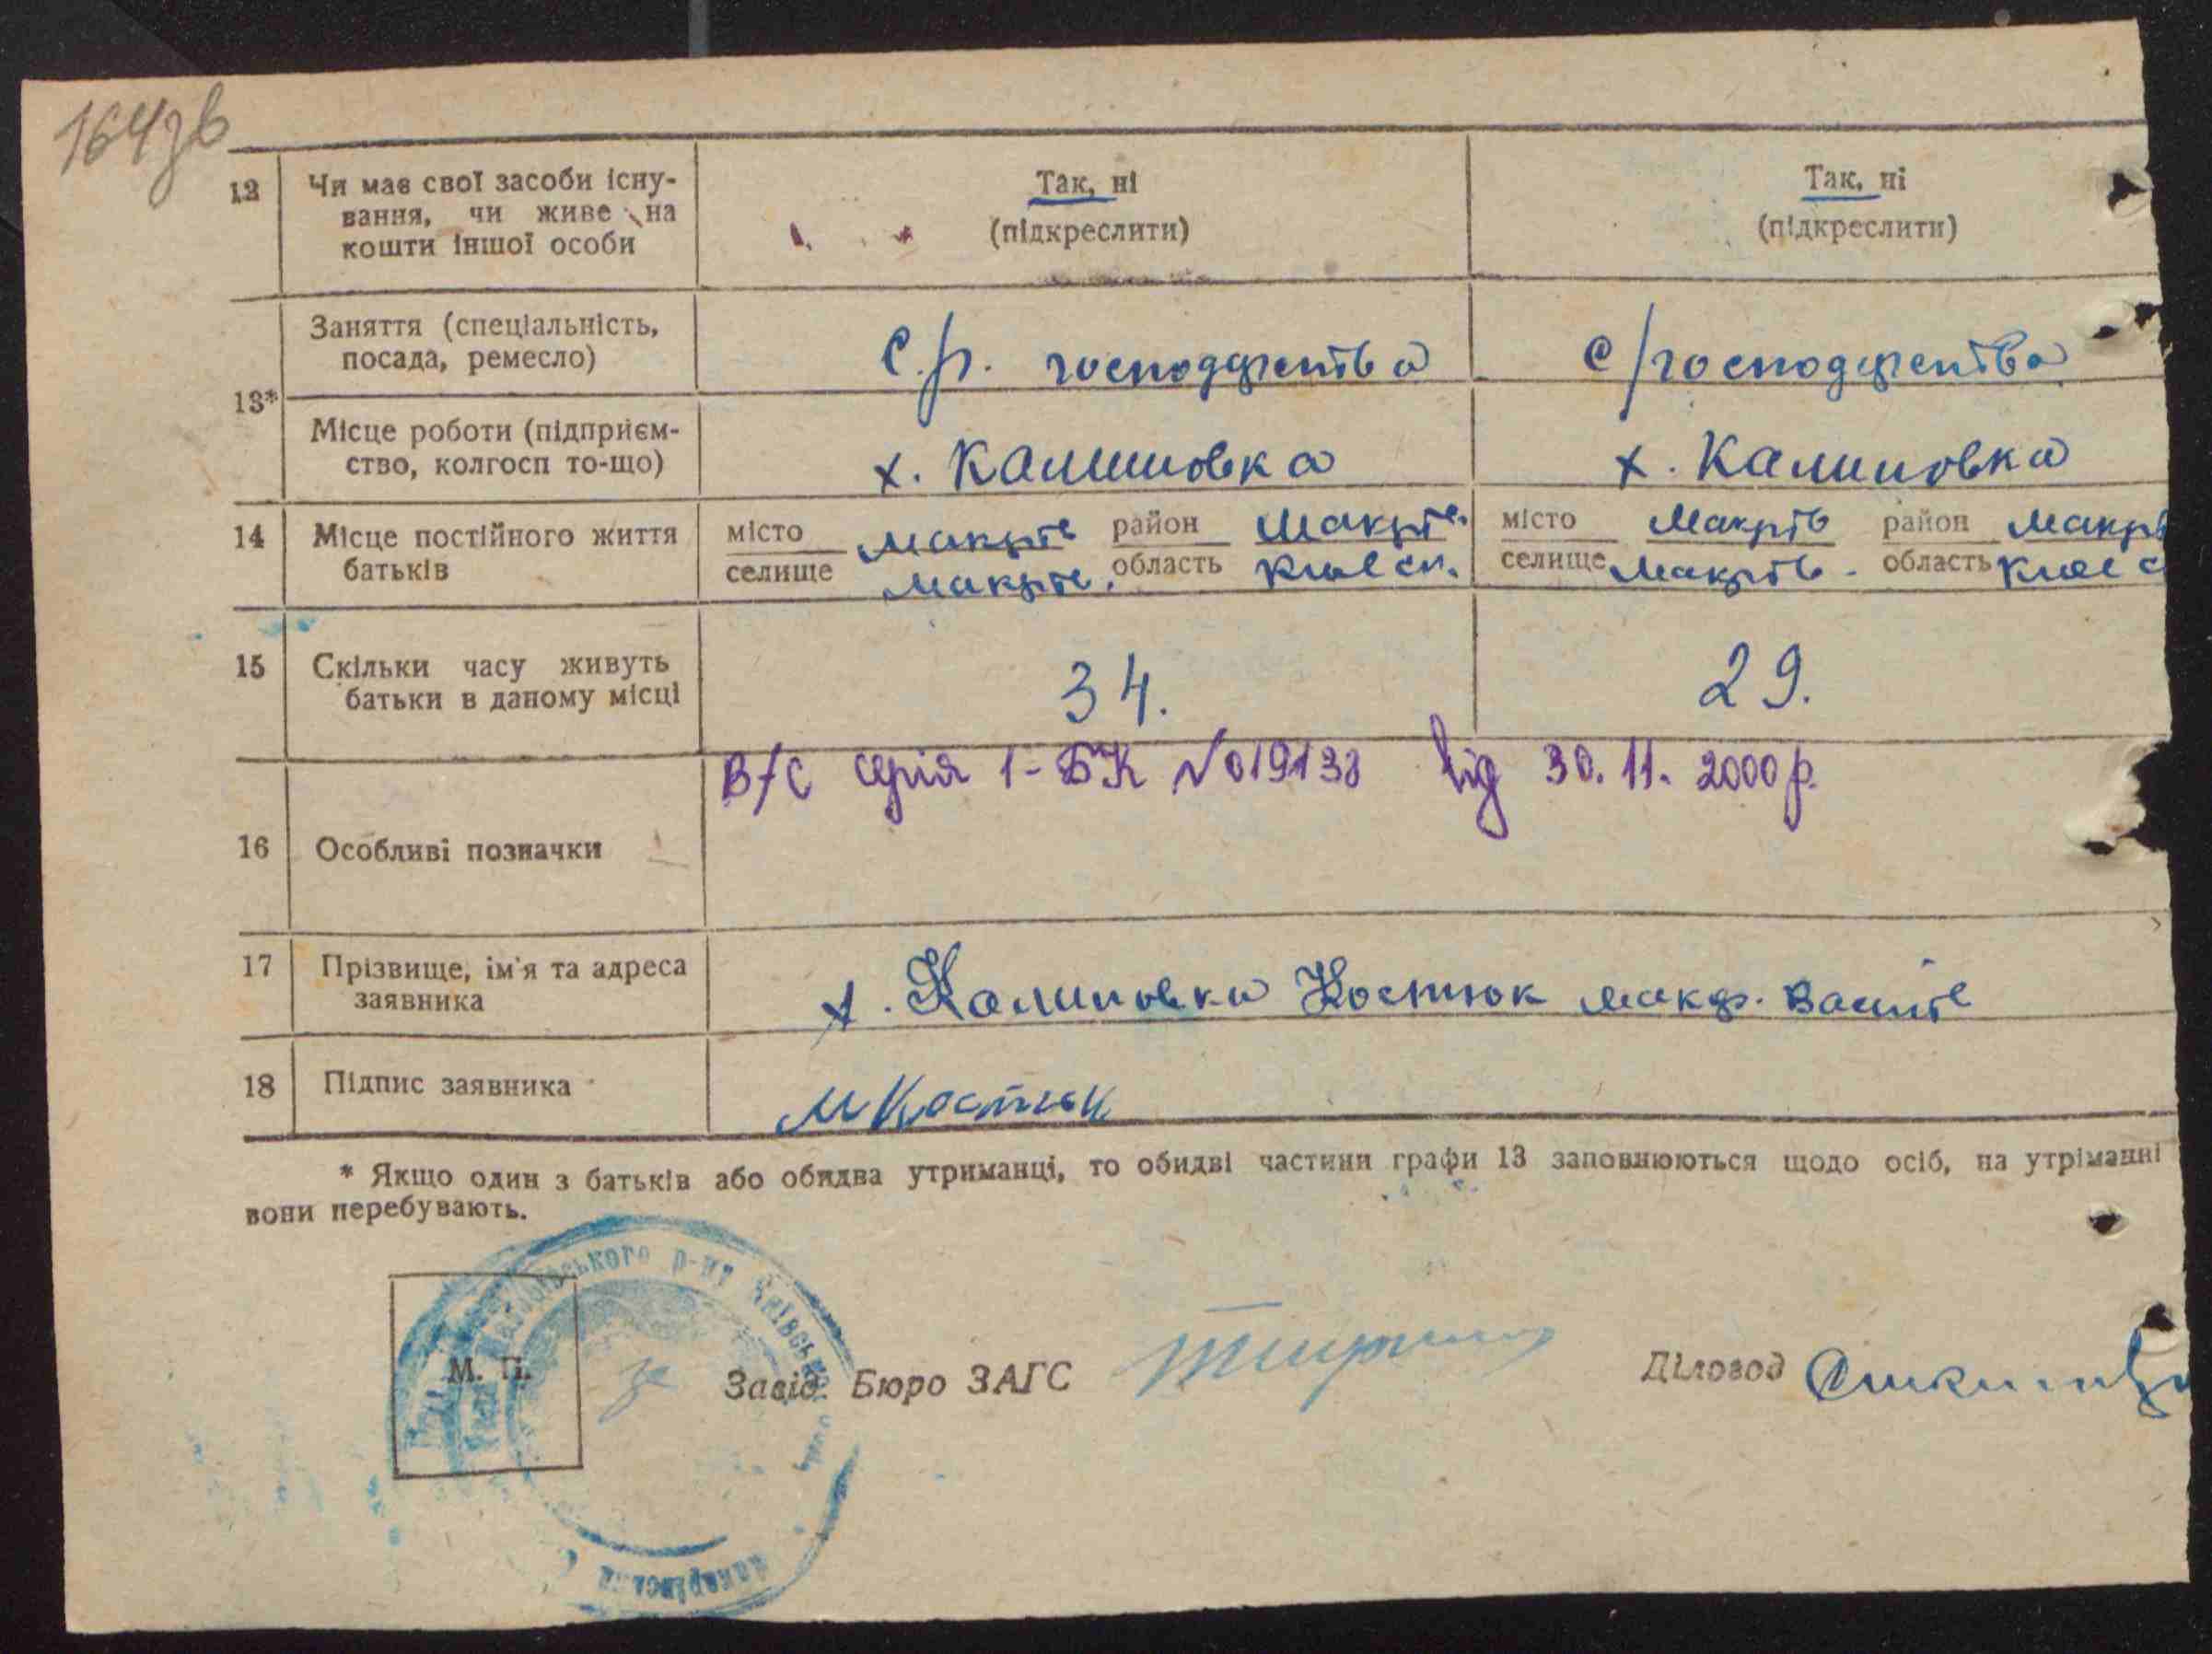 164зв
12 Чи має свої засоби існу-
вання, чи живе на
кошти іншої особи
Так, ні
(підкреслити)
Так, ні
(підкреслити)
13*
Заняття (спеціальність,
посада, ремесло)
С.р. господарства
с/господарства
Місце роботи (підприєм-
ство, колгосп то-що)
х. Калиновка
х. Калиновка
14 Місце постійного життя
батьків
місто Макрів район Макрів.
селище Макрів. область Києвск.
місто Макрів район Макрів
селище Макрів. область Києвс
15 Скільки часу живуть
батьки в даному місці
34.
29.
16 Особливі позначки
В/С серія 1-БК №019138 від 30.11.2000р.
17 Прізвище, ім'я та адреса
заявника
х. Калиновка Костюк макар. Васил
18 Підпис заявника
М Костюк
* Якщо один з батьків або обидва утриманці, то обидві частини графи 13 заповнюються щодо осіб, на утріманні
вони перебувають.
М. П.
ського р-ну Київської
Макарівська
за
Завід. Бюро ЗАГС
Діловод